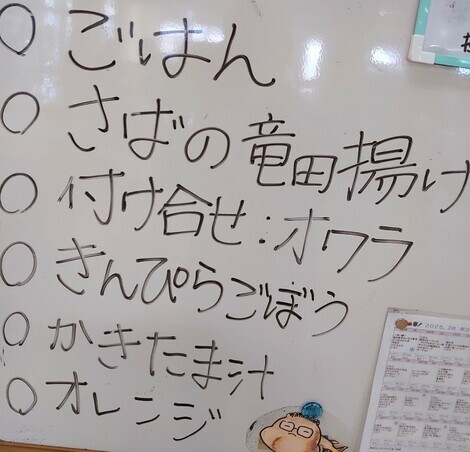 ○ ごはん
○ さばの竜田揚げ
○ 付け合せ：オクラ
○ きんぴらごぼう
○ かきたま汁
○ オレンジ